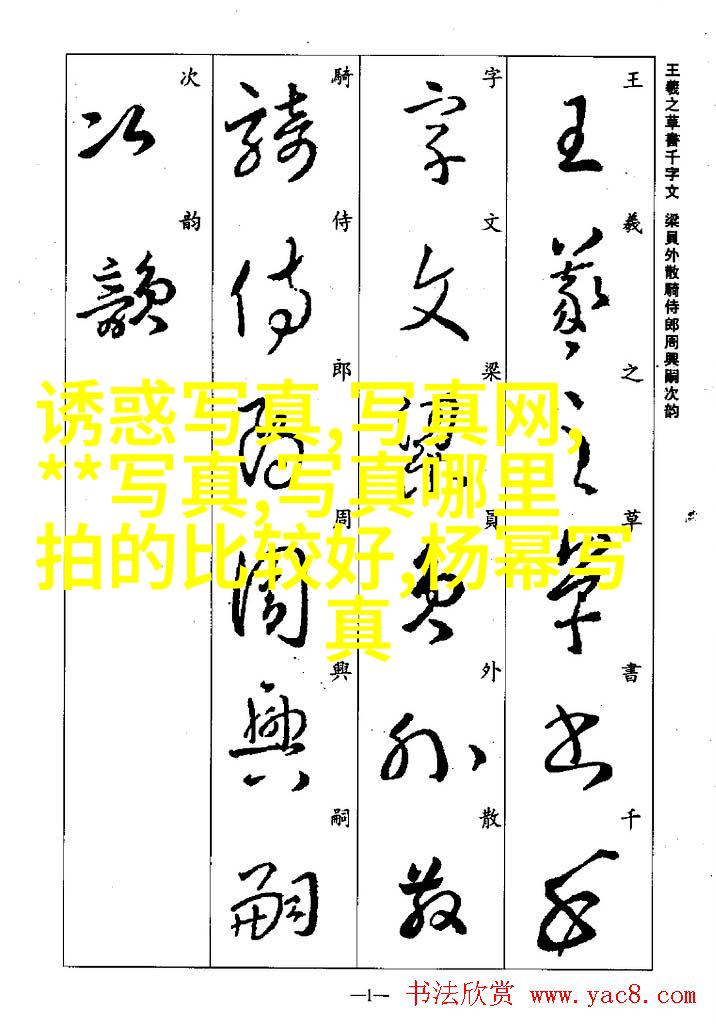 王羲之草書千字文 梁員外散騎侍郎周興嗣次韵
王羲之草書千
字文梁員外散
騎侍郎周興嗣
次韵
诱惑写真,写真网,
**写真,写真哪里
拍的比较好,杨幂写
真
—1—
书法欣赏 www.yac8.com